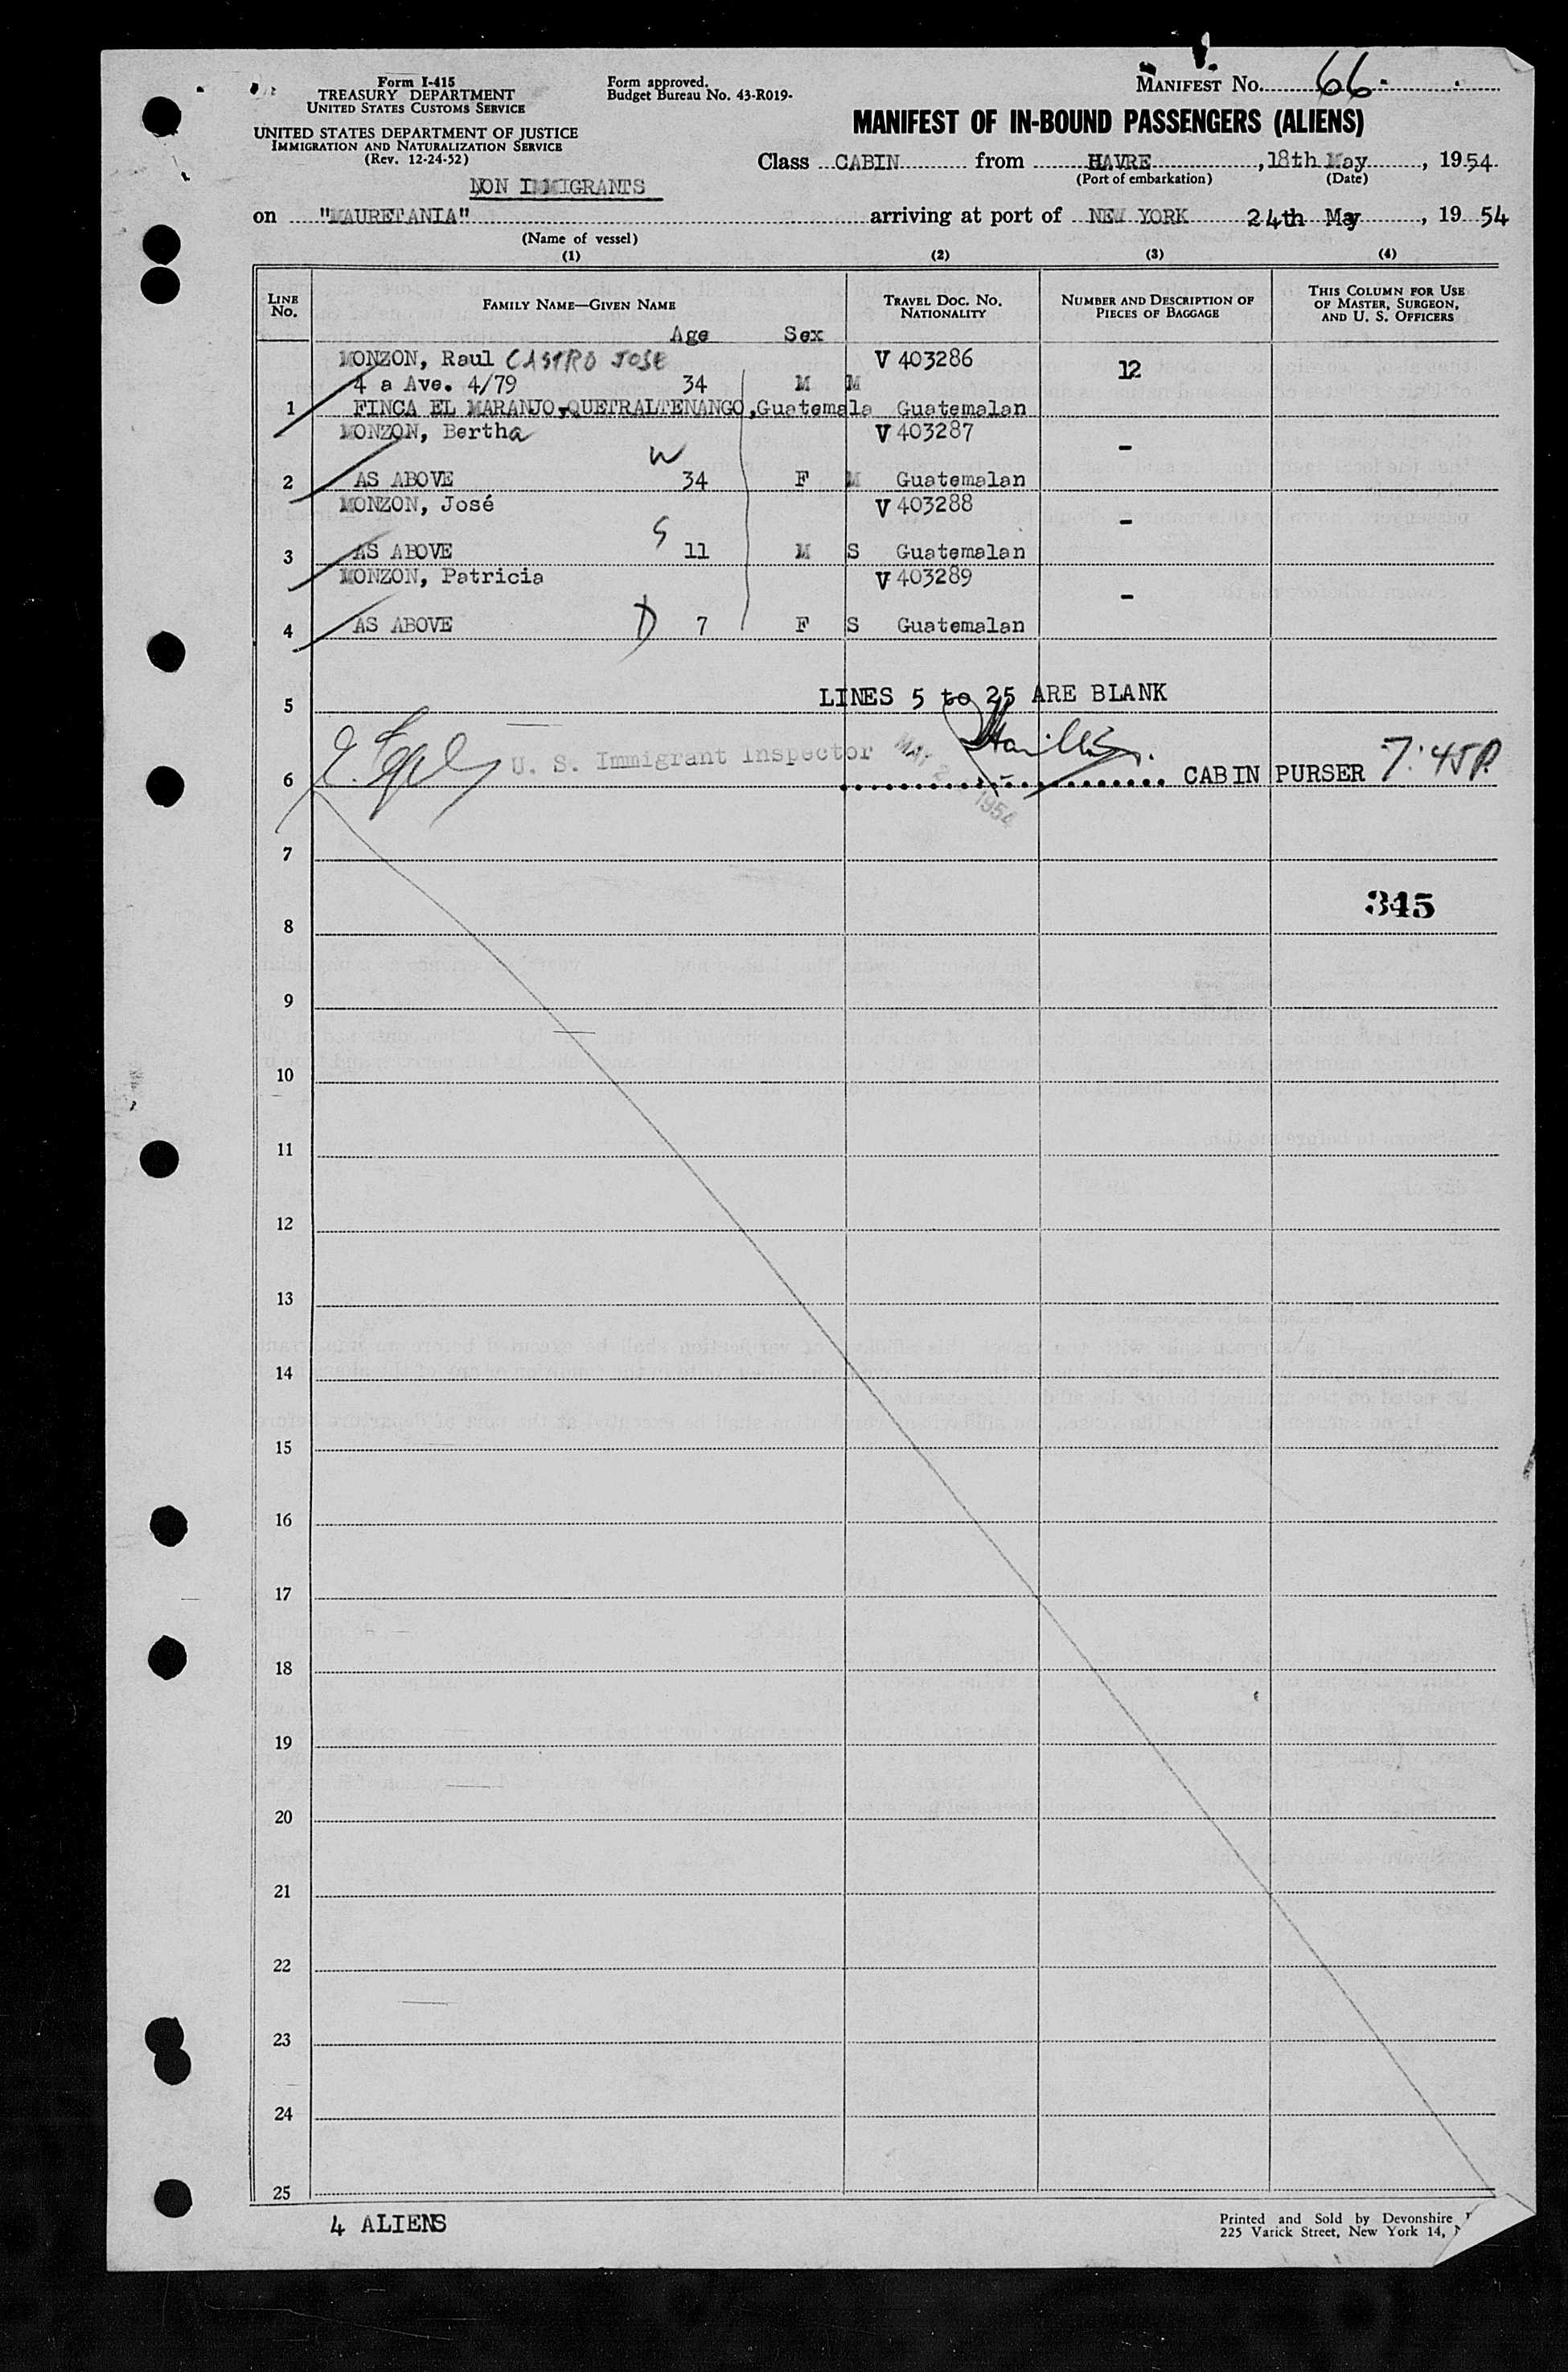 Form I-415
TREASURY DEPARTMENT
UNITED STATES CUSTOMS SERVICE
UNITED STATES DEPARTMENT OF JUSTICE
IMMIGRATION AND NATURALIZATION SERVICE
(Rev. 12-24-52)
Form approved.
Budget Bureau No. 43-R019-
MANIFEST No. 66
MANIFEST OF IN-BOUND PASSENGERS (ALIENS)
Class CABIN from HAVRE, 18th May, 1954
(Port of embarkation) (Date)
NON IMMIGRANTS
on "MAURETANIA" arriving at port of NEW YORK 24th May, 1954
(Name of vessel)
(1) (2) (3) (4)
LINE No. FAMILY NAME—GIVEN NAME TRAVEL DOC. No. NATIONALITY NUMBER AND DESCRIPTION OF PIECES OF BAGGAGE THIS COLUMN FOR USE OF MASTER, SURGEON, AND U. S. OFFICERS
Age Sex
MONZON, Raul CASTRO JOSE V 403286 12
4 a Ave. 4/79 34 M M
1 FINCA EL MARANJO, QUETRALTENANGO, Guatemala Guatemalan
MONZON, Bertha V 403287 -
W
2 AS ABOVE 34 F M Guatemalan
MONZON, José V 403288 -
S
3 AS ABOVE 11 M S Guatemalan
MONZON, Patricia V 403289 -
4 AS ABOVE D 7 F S Guatemalan
LINES 5 to 25 ARE BLANK
5
U. S. Immigrant Inspector MAY 2 1954
6 CABIN PURSER 7:45P.
7
345
8
9
10
11
12
13
14
15
16
17
18
19
20
21
22
23
24
25
4 ALIENS
Printed and Sold by Devonshire
225 Varick Street, New York 14,